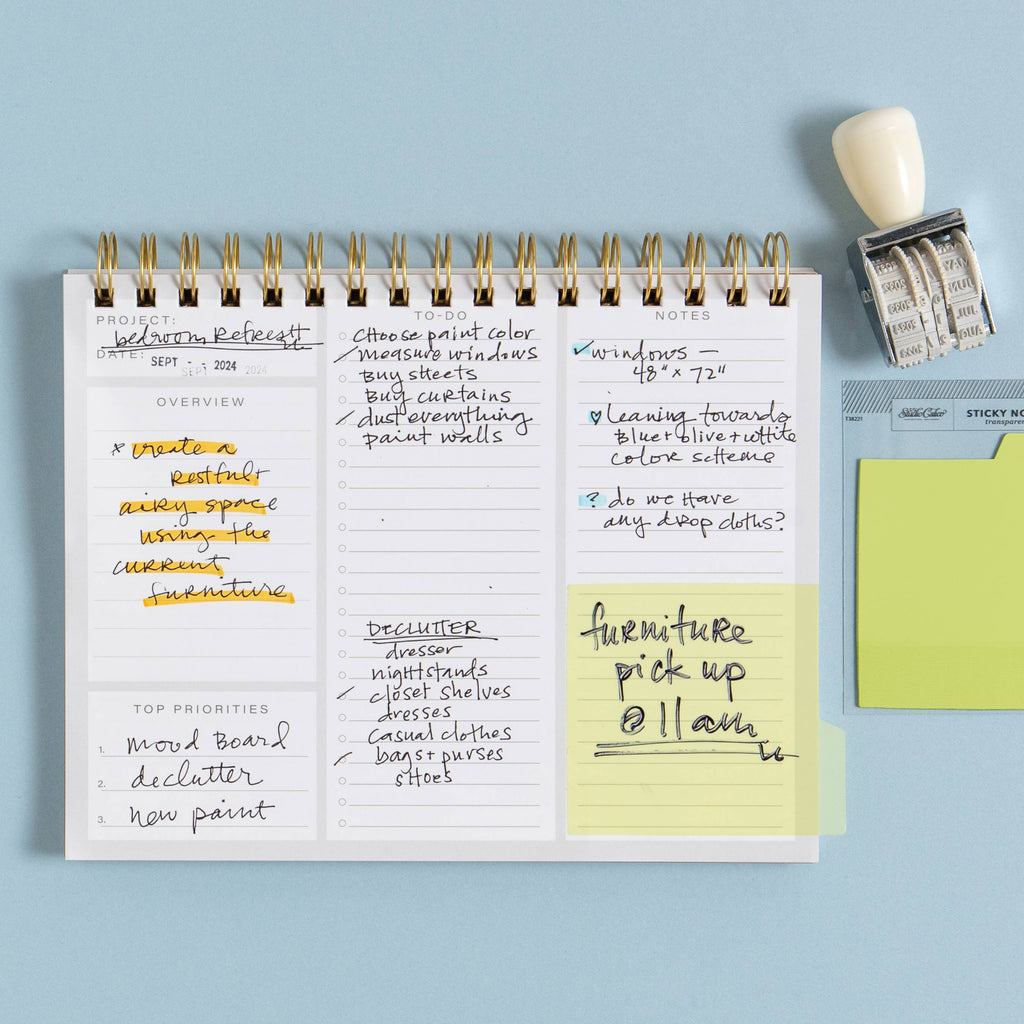 PROJECT:
bedroom Refresh
DATE:
SEPT -- 2024
SEPT 2024
OVERVIEW
* create a
restful +
airy space
using the
current
furniture
TOP PRIORITIES
1. mood Board
2. declutter
3. new paint
TO-DO
Choose paint color
measure windows
Buy sheets
Buy curtains
dust everything
paint walls
DECLUTTER
dresser
nightstands
closet shelves
dresses
casual clothes
bags + purses
shoes
NOTES
✓ windows —
48" x 72"
♥ leaning towards
Blue + olive + white
color scheme
? do we have
any drop cloths?
furniture
pick up
@ 11 am
JUL
T38221
Studio Calico
STICKY NO
transparen